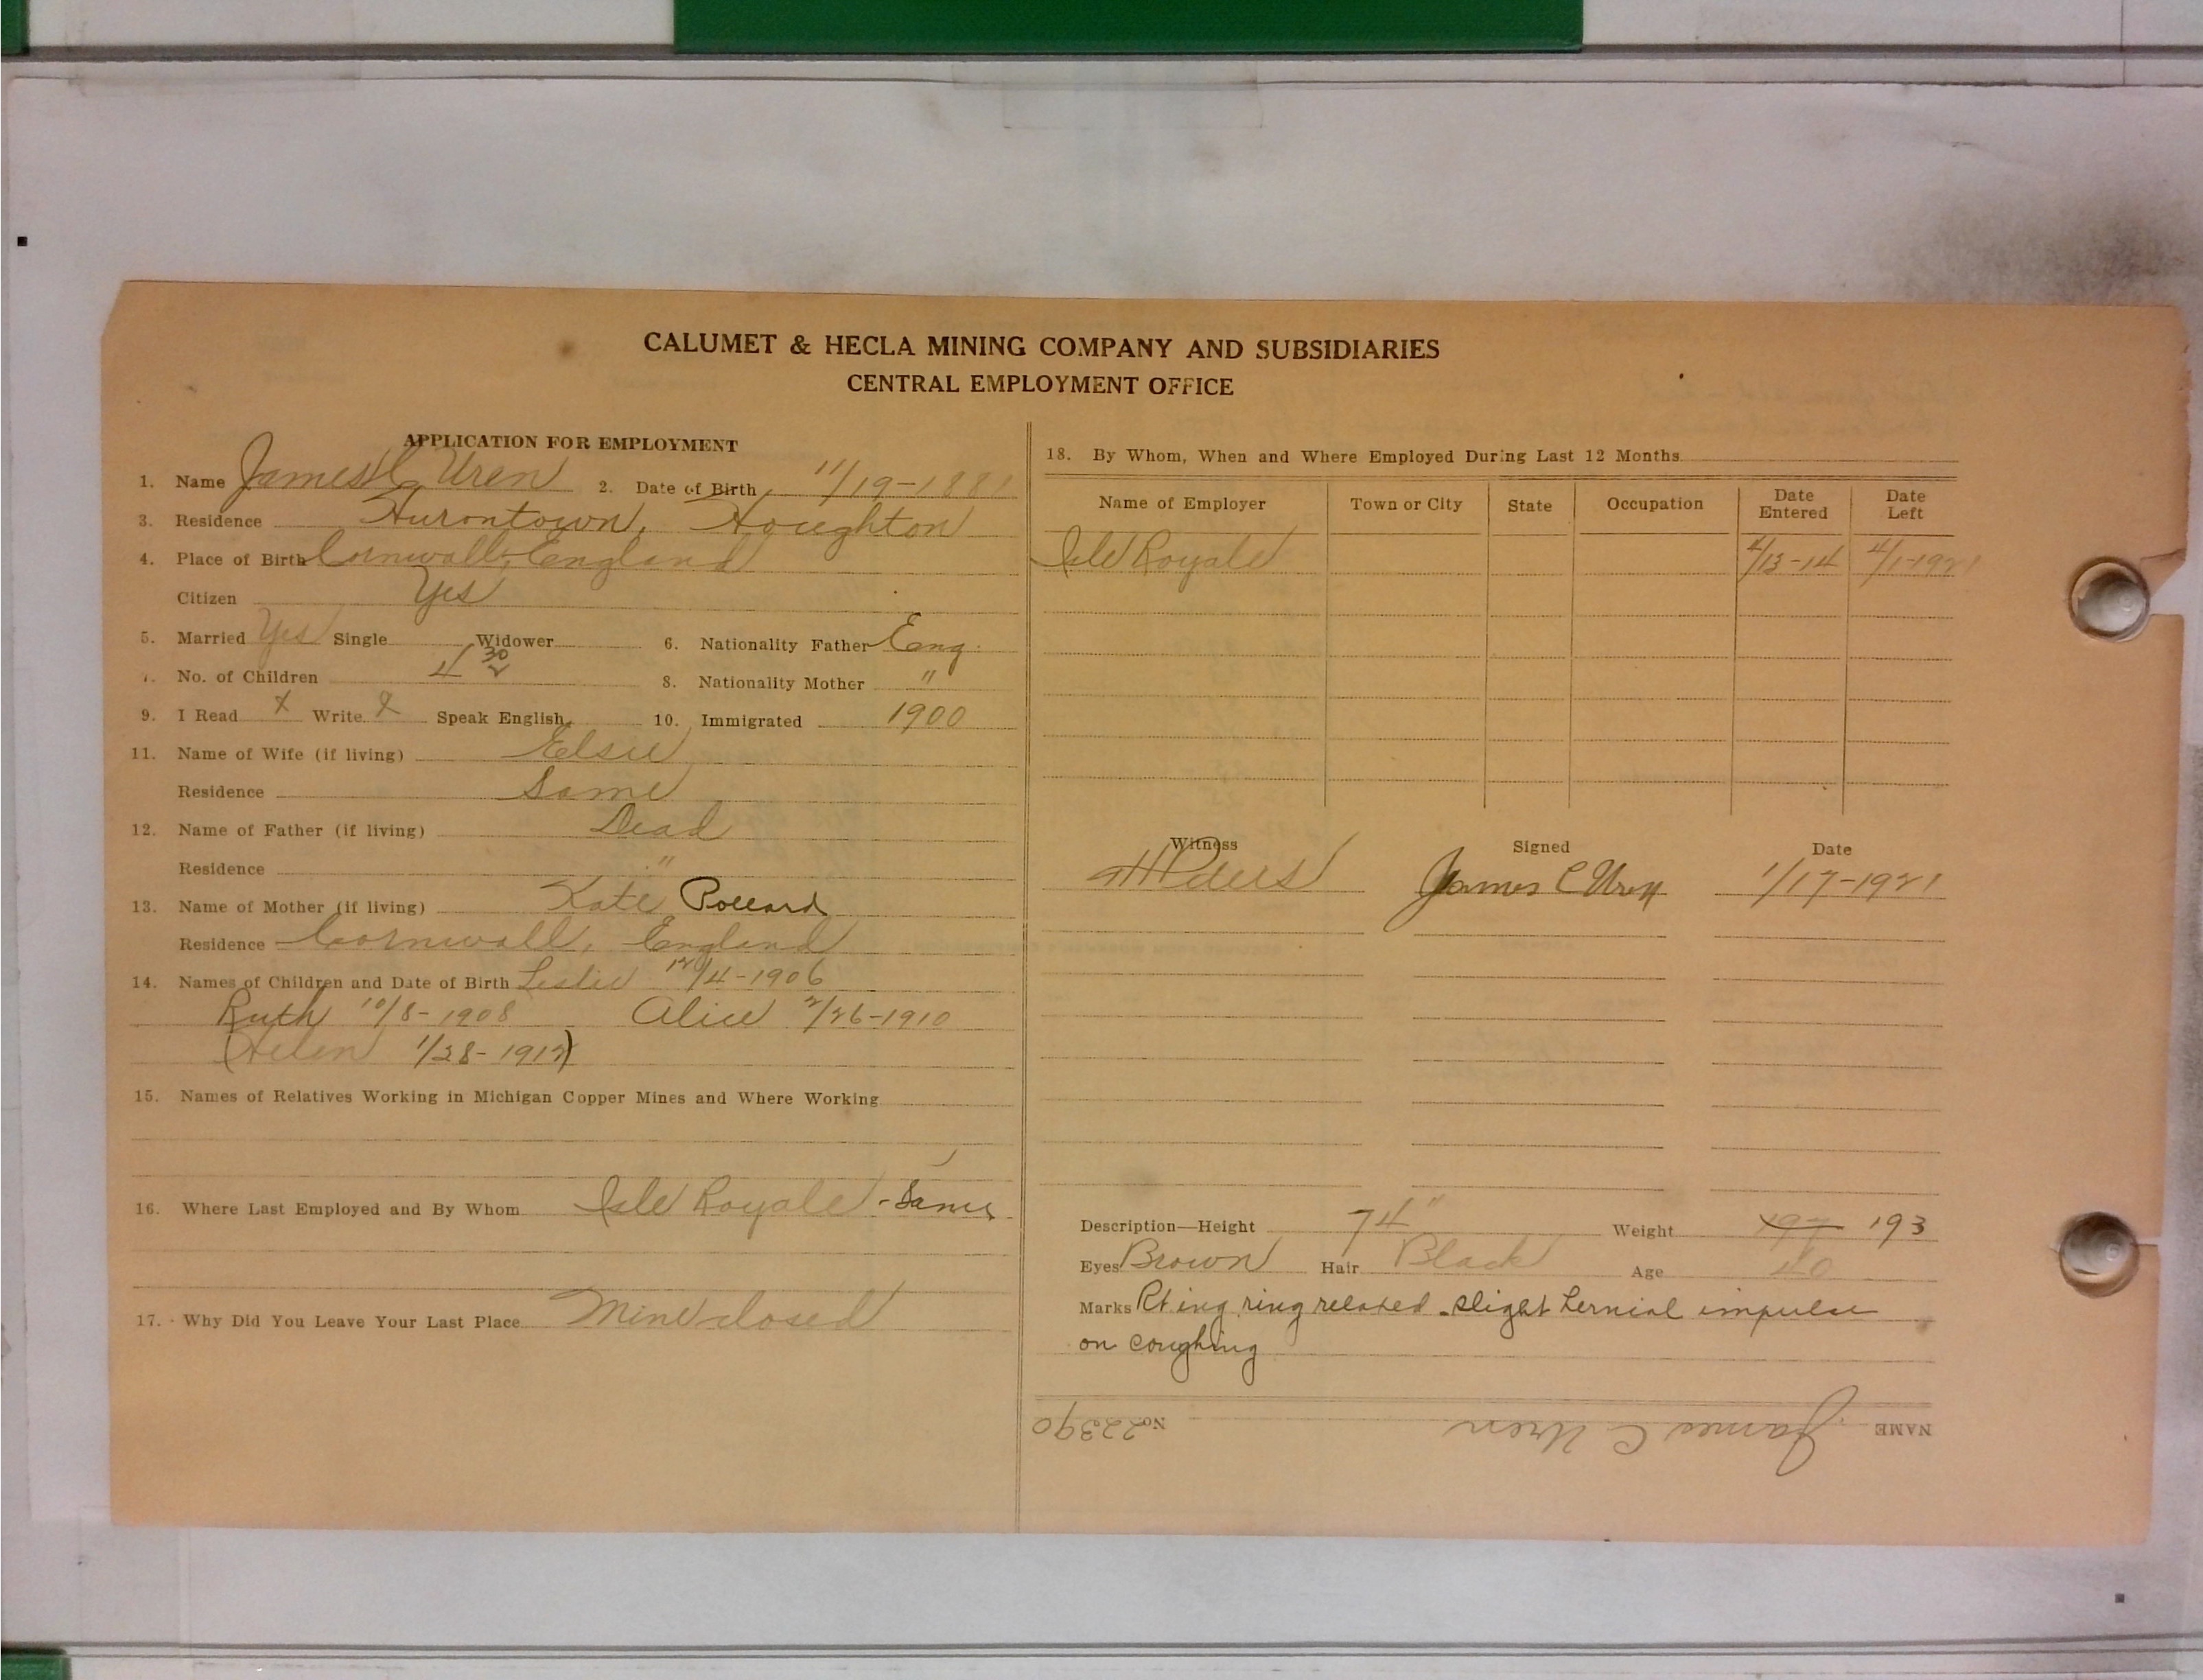 CALUMET & HECLA MINING COMPANY AND SUBSIDIARIES
CENTRAL EMPLOYMENT OFFICE
APPLICATION FOR EMPLOYMENT
1. Name James C Uren 2. Date of Birth 11/19-1881
3. Residence Hurontown, Houghton
4. Place of Birth Cornwall, England
Citizen Yes
5. Married Yes Single Widower 6. Nationality Father Eng.
7. No. of Children 4 30 2 8. Nationality Mother "
9. I Read X Write X Speak English 10. Immigrated 1900
11. Name of Wife (if living) Elsie
Residence Same
12. Name of Father (if living) Dead
Residence "
13. Name of Mother (if living) Kate Pollard
Residence Cornwall, England
14. Names of Children and Date of Birth Leslie 12/4-1906
Ruth 10/8-1908 Alice 2/26-1910
(Helen 1/28-1912)
15. Names of Relatives Working in Michigan Copper Mines and Where Working
16. Where Last Employed and By Whom Isle Royale - Same
17. Why Did You Leave Your Last Place Mine closed
18. By Whom, When and Where Employed During Last 12 Months
Name of Employer Town or City State Occupation Date Entered Date Left
Isle Royale 4/13-14 4/1-1921
Witness Signed Date
James C Uren 1/17-1921
Description—Height 74" Weight 197 193
Eyes Brown Hair Black Age 40
Marks Rt ing ring relaxed - slight hernial impulse
on coughing
NAME James C Uren No. 22390